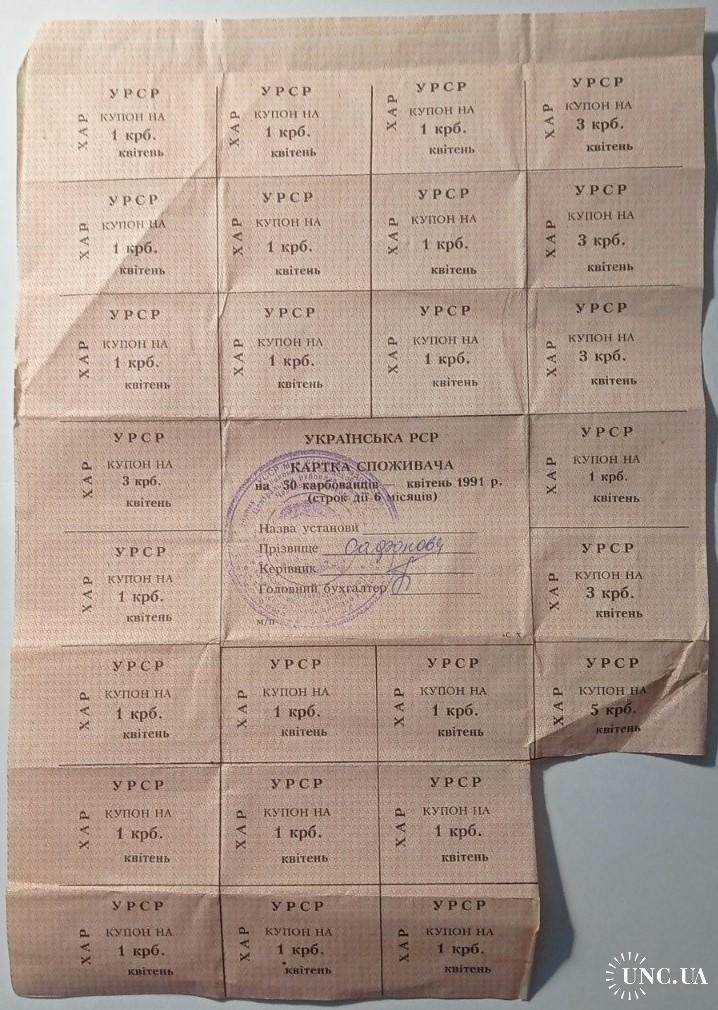 УРСР
ХАР
КУПОН НА
1 крб.
квітень
УРСР
ХАР
КУПОН НА
1 крб.
квітень
УРСР
ХАР
КУПОН НА
1 крб.
квітень
УРСР
ХАР
КУПОН НА
3 крб.
квітень
УРСР
ХАР
КУПОН НА
1 крб.
квітень
УРСР
ХАР
КУПОН НА
1 крб.
квітень
УРСР
ХАР
КУПОН НА
1 крб.
квітень
УРСР
ХАР
КУПОН НА
3 крб.
квітень
УРСР
ХАР
КУПОН НА
1 крб.
квітень
УРСР
ХАР
КУПОН НА
1 крб.
квітень
УРСР
ХАР
КУПОН НА
1 крб.
квітень
УРСР
ХАР
КУПОН НА
3 крб.
квітень
УРСР
ХАР
КУПОН НА
3 крб.
квітень
УКРАЇНСЬКА РСР
КАРТКА СПОЖИВАЧА
на 50 карбованців — квітень 1991 р.
(строк дії 6 місяців)
Назва установи
Прізвище
Керівник
Головний бухгалтер
м/п
УРСР
ХАР
КУПОН НА
1 крб.
квітень
УРСР
ХАР
КУПОН НА
1 крб.
квітень
УРСР
ХАР
КУПОН НА
3 крб.
квітень
УРСР
ХАР
КУПОН НА
1 крб.
квітень
УРСР
ХАР
КУПОН НА
1 крб.
квітень
УРСР
ХАР
КУПОН НА
1 крб.
квітень
УРСР
ХАР
КУПОН НА
5 крб.
квітень
УРСР
ХАР
КУПОН НА
1 крб.
квітень
УРСР
ХАР
КУПОН НА
1 крб.
квітень
УРСР
ХАР
КУПОН НА
1 крб.
квітень
УРСР
ХАР
КУПОН НА
1 крб.
квітень
УРСР
ХАР
КУПОН НА
1 крб.
квітень
УРСР
ХАР
КУПОН НА
1 крб.
квітень
UNC.UA